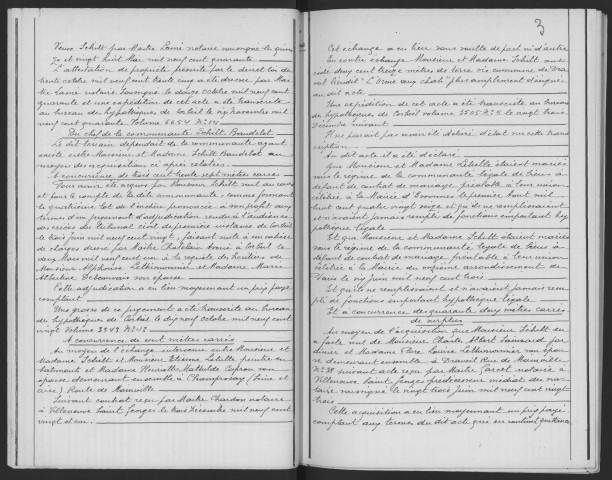 Veuve Schitt par Maître Lainé notaire soussigné le quinze
et vingt huit Mai mil neuf cent quarante
L'attestation de propriété prescrite par le décret loi de
trente octobre mil neuf cent trente cinq a été dressée par Maî
tre Lainé notaire soussigné le douze octobre mil neuf cent
quarante et une expédition de cet acte a été transcrite
au bureau des hypothèques de Corbeil le six novembre mil
neuf cent quarante Volume
Du chef de la communauté Schitt Baudelot
Le dit terrain dépendait de la communauté ayant
existé entre Monsieur et Madame Schitt Baudelot au
moyen des acquisitions ci après relatées
A concurrence de trois cent trente sept mètres carrés
Pour avoir été acquis par Monsieur Schitt seul au cours
et pour le compte de la dite communauté comme formant
le quatrième lot de l'enchère prononcée à son profit aux
termes d'un jugement d'adjudication rendu à l'audience
des criées du Tribunal civil de première instance de Corbeil
le trois Juin mil neuf cent vingt, faisant suite à un cahier
de charges dressé par Maître Chatelain avoué à Corbeil le
deux Mars mil neuf cent vingt à la requête des héritiers de
Monsieur Alphonse Lethimonnier et Madame Marie
Albertine son épouse
Cette adjudication a eu lieu moyennant un prix payé
comptant
Une grosse de ce jugement a été transcrite au bureau
des hypothèques de Corbeil le dix neuf octobre mil neuf cent
vingt Volume 3343 N°
A concurrence de cent mètres carrés
Au moyen de l'échange intervenu entre Monsieur et
Madame Schitt et Monsieur Etienne Labille peintre en
bâtiments et Madame Henriette Mathilde Cupron son
épouse demeurant ensemble à Champrosay (Seine et
Oise) Route de
Suivant contrat reçu par Maître Chardon notaire
à Villeneuve Saint Georges le trois Décembre mil neuf cent
vingt et un
3
Cet échange a eu lieu sans soulte de part ni d'autre
En contre échange Monsieur et Madame Schitt ont
cédé deux cent treize mètres de terre sis commune de Dra
veil lieudit "L'Orme aux chats" plus amplement désignés
au dit acte
Une expédition de cet acte a été transcrite au bureau
des hypothèques de Corbeil volume 3505 N° le vingt trois
Décembre suivant
Il ne paraît pas avoir été délivré d'état sur cette trans
cription
Au dit acte il a été déclaré
Que Monsieur et Madame Labille étaient mariés
sous le régime de la communauté légale de biens à
défaut de contrat de mariage préalable à leur union
célébrée à la Mairie d'Essonnes le premier Août mil
huit cent quatre vingt seize et qu'ils ne remplissaient
et n'avaient jamais rempli de fonctions emportant hy
pothèque légale
Et que Monsieur et Madame Schitt étaient mariés
sous le régime de la communauté légale de biens à
défaut de contrat de mariage préalable à leur union
célébrée à la Mairie du onzième arrondissement de
Paris le six juin mil neuf cent trois
Et qu'ils ne remplissaient et n'avaient jamais rem
pli de fonctions emportant hypothèque légale
Et à concurrence des quarante deux mètres carrés
de surplus
Au moyen de l'acquisition que Monsieur Schitt en
a faite seul de Monsieur Charles Albert jar
dinier et Madame Claire Louise Lethimonnier son épou
se demeurant ensemble à Draveil Rue de Mainville
N° 38 suivant acte reçu par Maître notaire à
Villeneuve Saint Georges prédécesseur médiat du no
taire soussigné le vingt trois Juin mil neuf cent vingt
trois
Cette acquisition a eu lieu moyennant un prix payé
comptant aux termes du dit acte qui en contient quittance